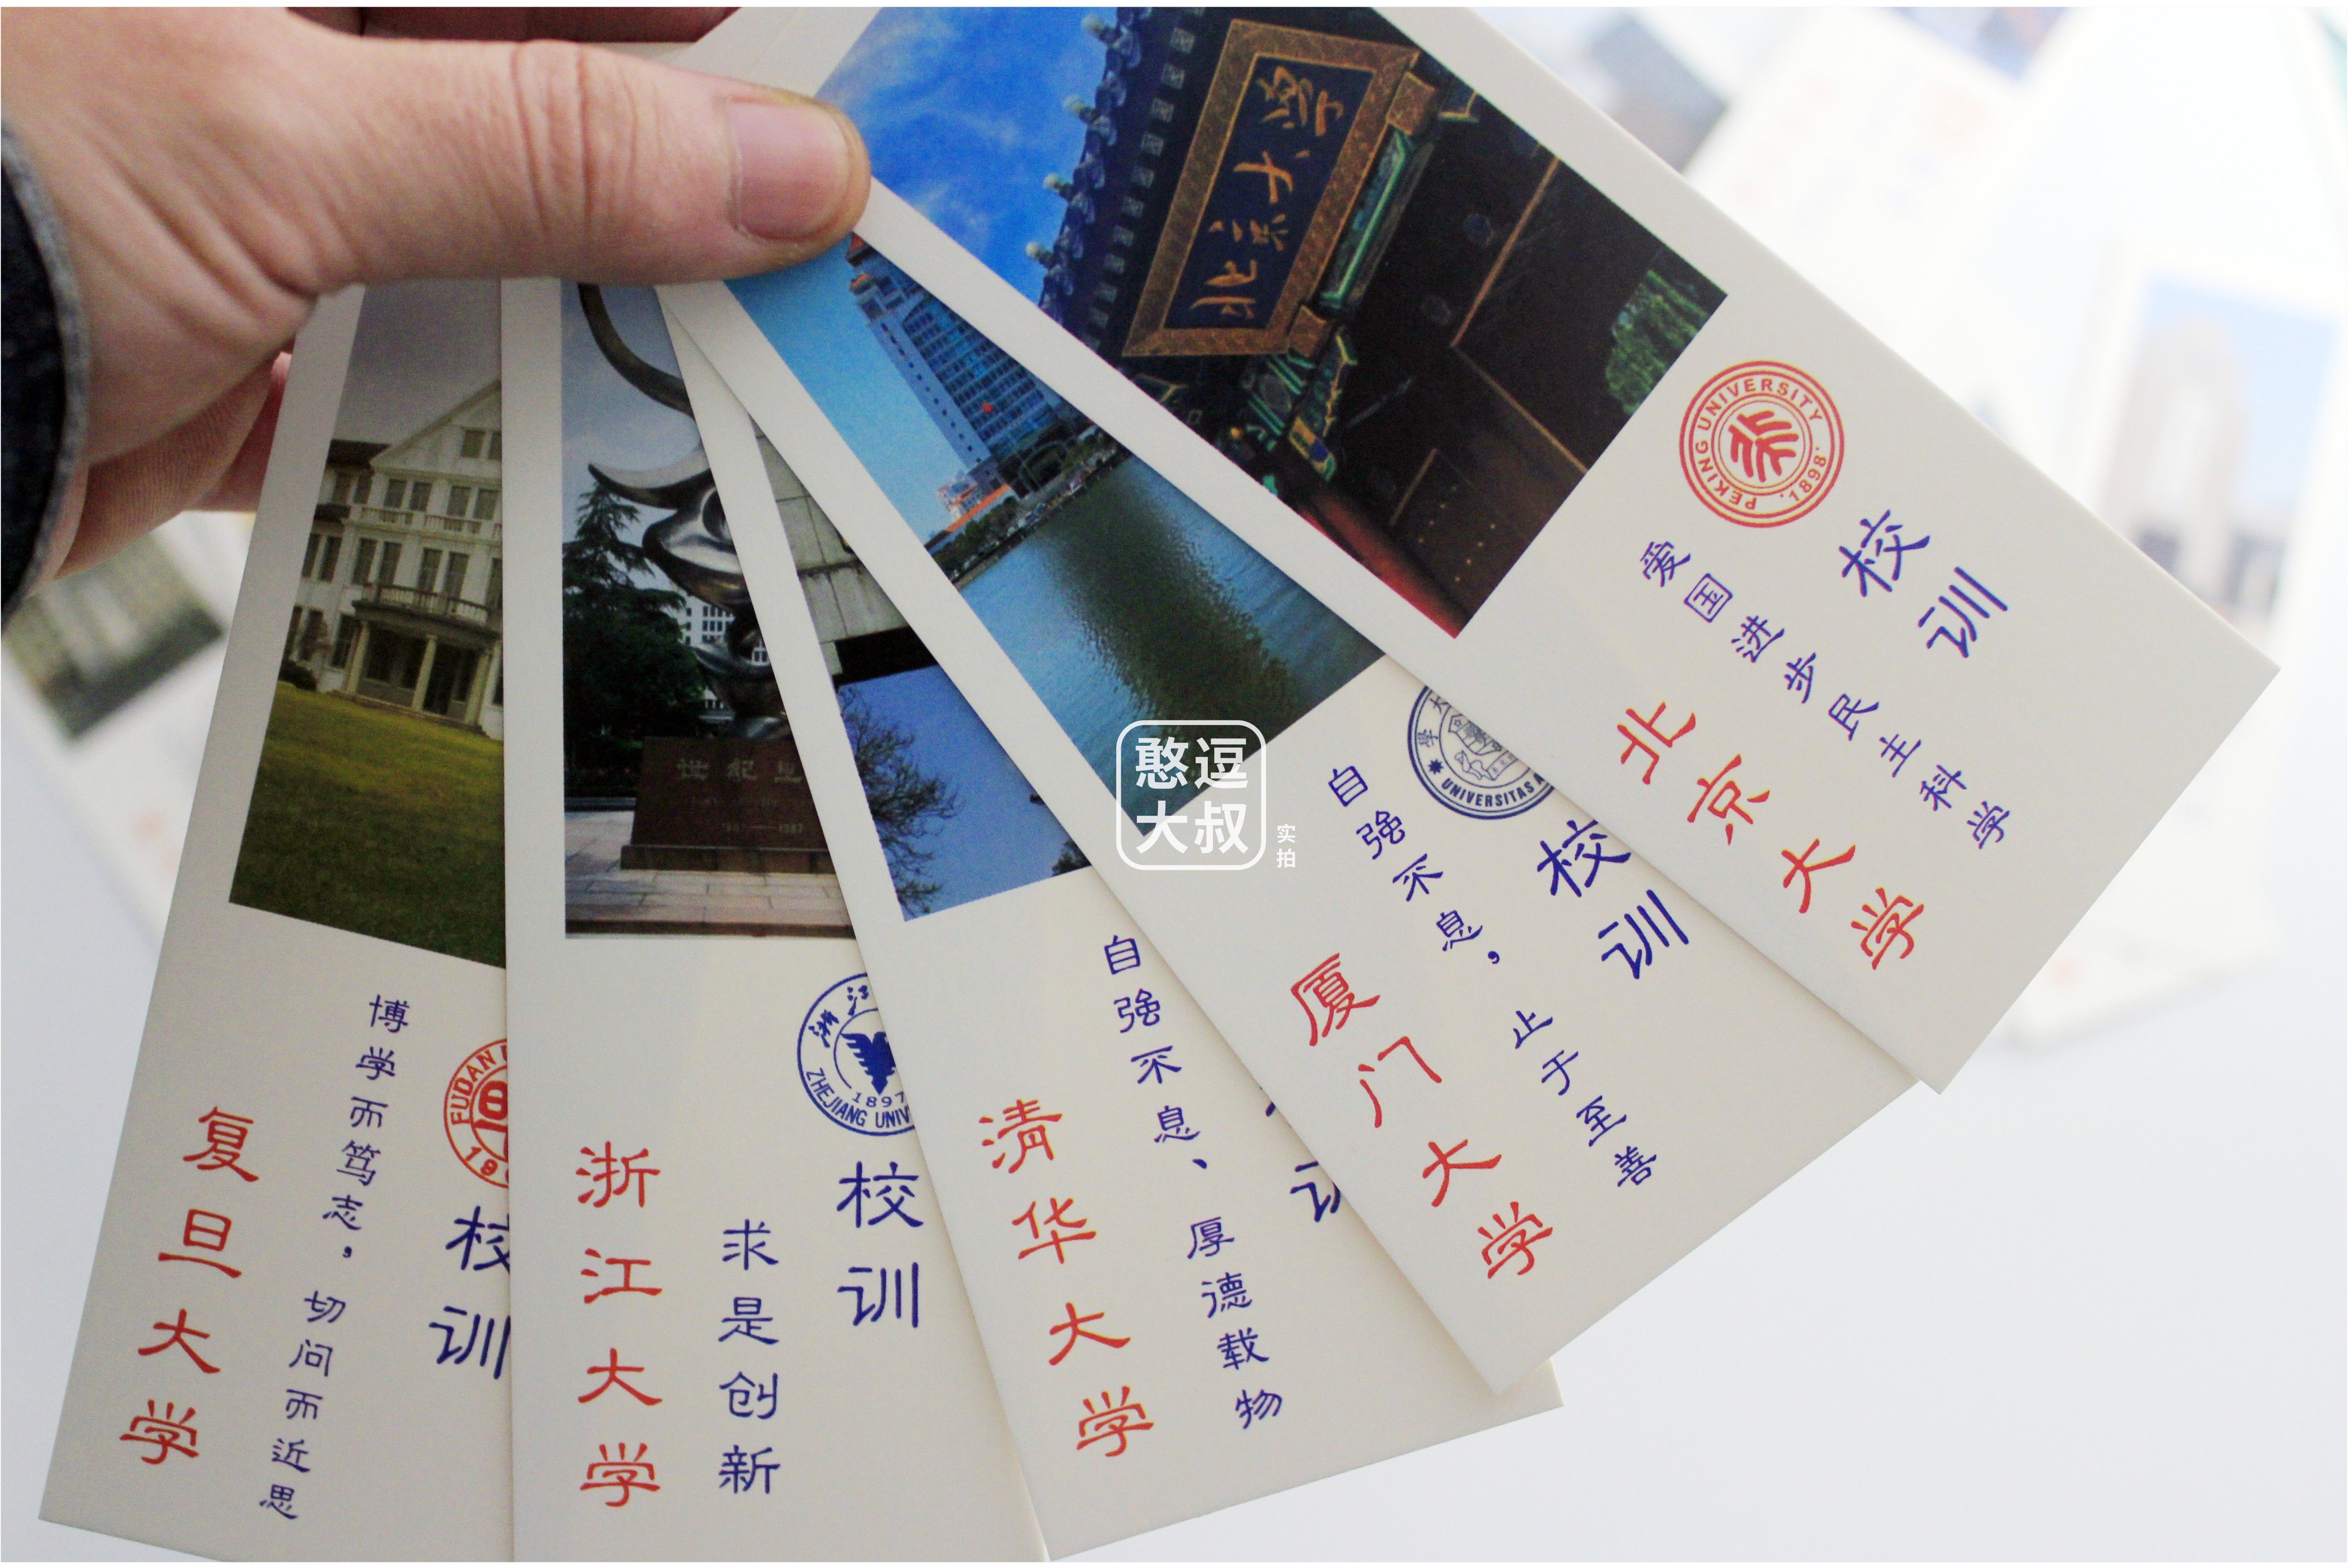 复旦大学
博学而笃志，切问而近思
FUDAN
校训
浙江大学
求是创新
浙江
1897
ZHEJIANG UNIV
校训
清华大学
自强不息、厚德载物
训
厦门大学
自强不息，止于至善
學大
UNIVERSITAS A
校训
北京大学
北京大学
爱国进步民主科学
PEKING UNIVERSITY
1898
校训
憨逗
大叔
实拍